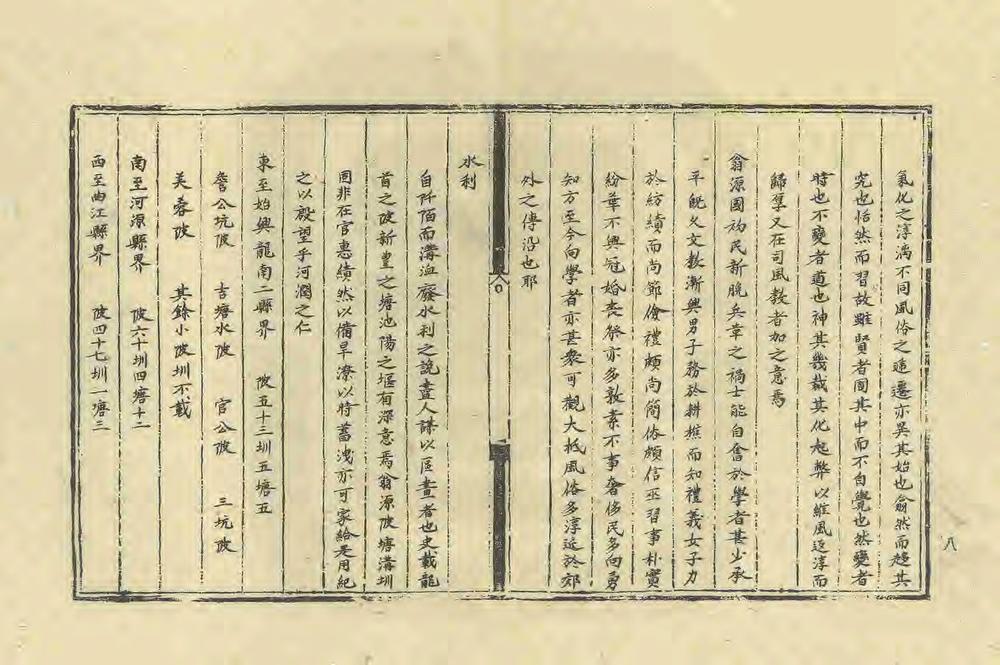 氣化之淳漓不同風俗之遞遷亦異其始也翕然而趨其
究也恬然而習故雖賢者囿其中而不自覺也然變者
時也不變者道也神其幾裁其化起弊以維風返淳而
歸厚又在司風教者加之意焉
翁源國初民新脫兵革之禍士能自奮於學者甚少承
平既久文教漸興男子務於耕樵而知禮義女子力
於紡績而尚節儉禮頗尚簡俗頗信巫習事朴實
紛華不興冠婚喪祭亦多敦素不事奢侈民多向勇
知方至今向學者亦甚衆可觀大抵風俗多淳近於郊
外之傳沿也耶
水利
自阡陌而溝洫廢水利之說盡人謀以區畫者也史載龍
首之陂新豊之塘池陽之堰有深意焉翁源陂塘溝圳
固非在官惠績然以備旱潦以時蓄洩亦可家給是用紀
之以殷望乎河潤之仁
東至始興龍南二縣界 陂五十三圳五塘五
詹公坑陂 吉塘水陂 官公陂 三坑陂
芙蓉陂 其餘小陂圳不載
南至河源縣界 陂六十圳四塘十二
西至曲江縣界 陂四十七圳一塘三
八